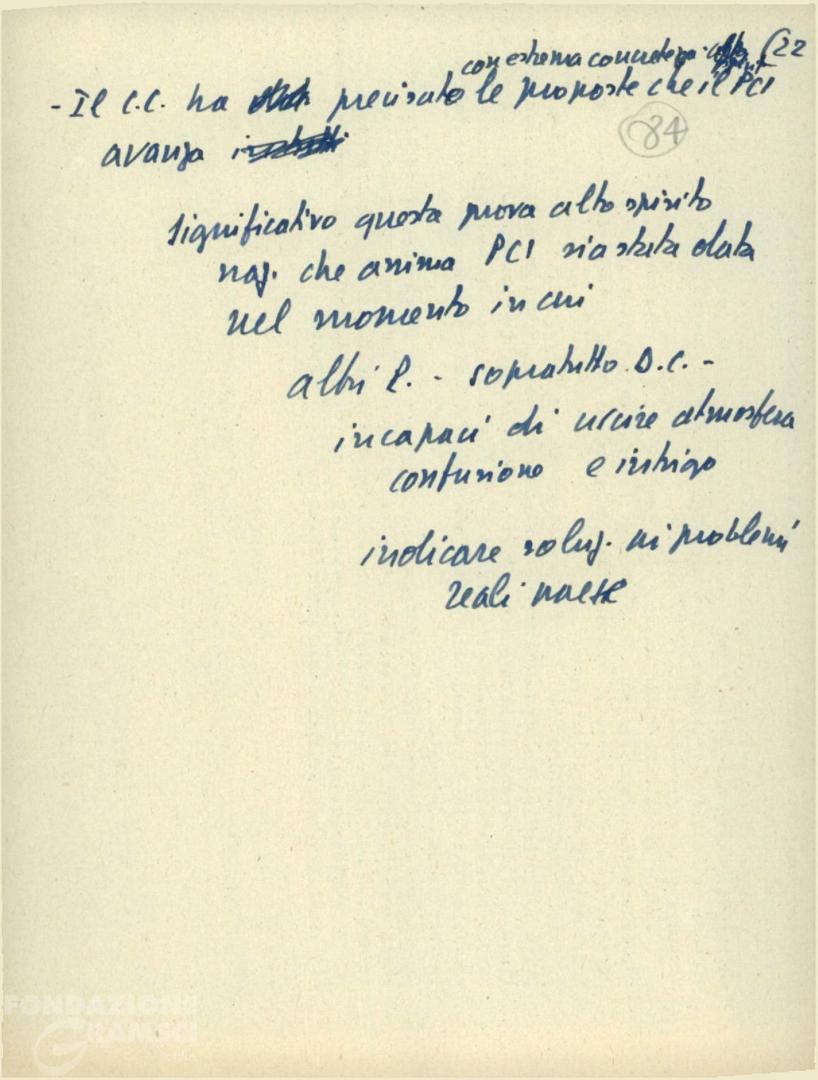 con estrema concretezza (22
- Il C.C. ha precisato le proposte che il PCI
84
avanza
significativo questa prova alto spirito
naz. che anima PCI sia stata data
nel momento in cui
altri P. - sopratutto D.C. -
incapaci di uscire atmosfera
confusione e intrigo
indicare soluz. ai problemi
reali paese
FONDAZIONE
GRAMSCI